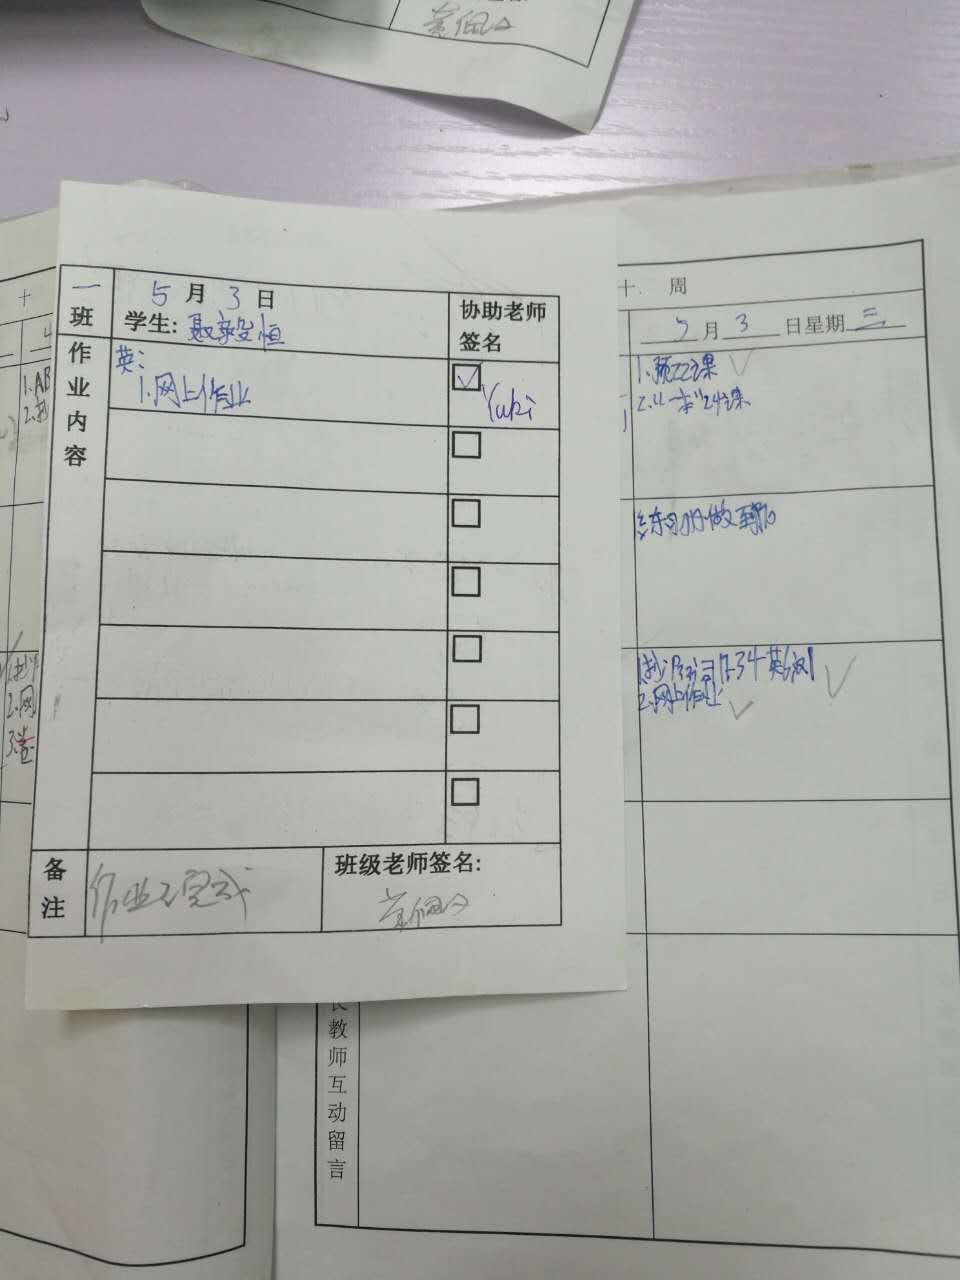 一班
5月3日
学生: 聂毅恒
协助老师签名
作业内容
英:
1.网上作业
Yuki
备注
作业已完成
班级老师签名:
黄佩
十
4
1.AB
2.抄
2.网
3.卷
十 周
5月3日星期三
1.预22课
2.《一本》24课
练习册做到
2.网上作业
教师互动留言